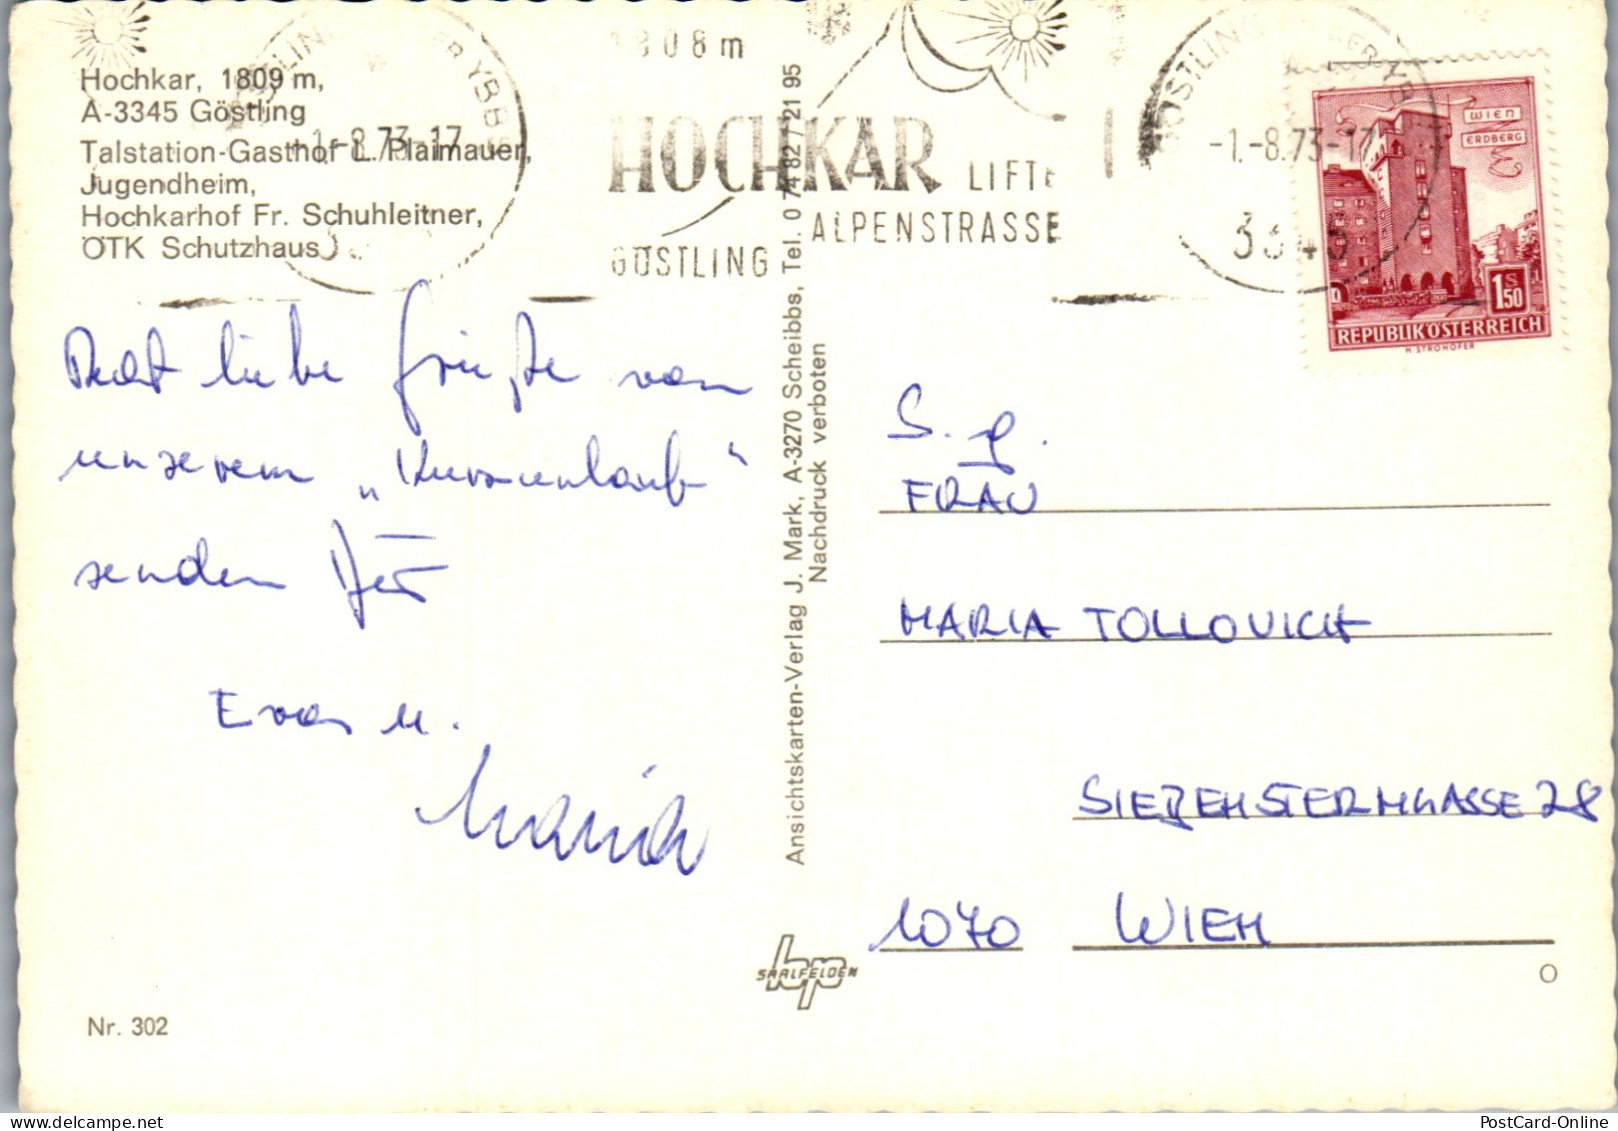 Hochkar, 1809 m,
A-3345 Göstling
Talstation-Gasthof L. Plaimauer,
Jugendheim,
Hochkarhof Fr. Schuhleitner,
ÖTK Schutzhaus
GÖSTLING AN DER YBBS
-1.-8.73-17
1808m
HOCHKAR LIFTE
ALPENSTRASSE
GÖSTLING
GÖSTLING AN DER YBBS
-1.-8.73-17
3345
WIEN
ERDBERG
1S50
REPUBLIK ÖSTERREICH
H. STROHOFER
Recht liebe Grüße von
unserem „Kurzurlaub"
senden Dir
Eva u.
Maria
Ansichtskarten-Verlag J. Mark, A-3270 Scheibbs, Tel. 0 74 82 / 21 95
Nachdruck verboten
S. g.
FRAU
MARIA TOLLOVICH
SIEBENSTERNGASSE 28
1070 WIEN
SAALFELDEN
hp
O
Nr. 302
PostCard-Online